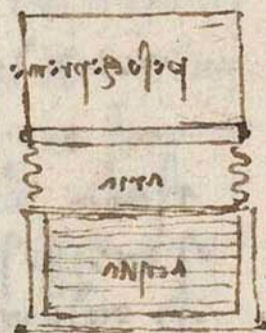 peso che preme
aria
acqua